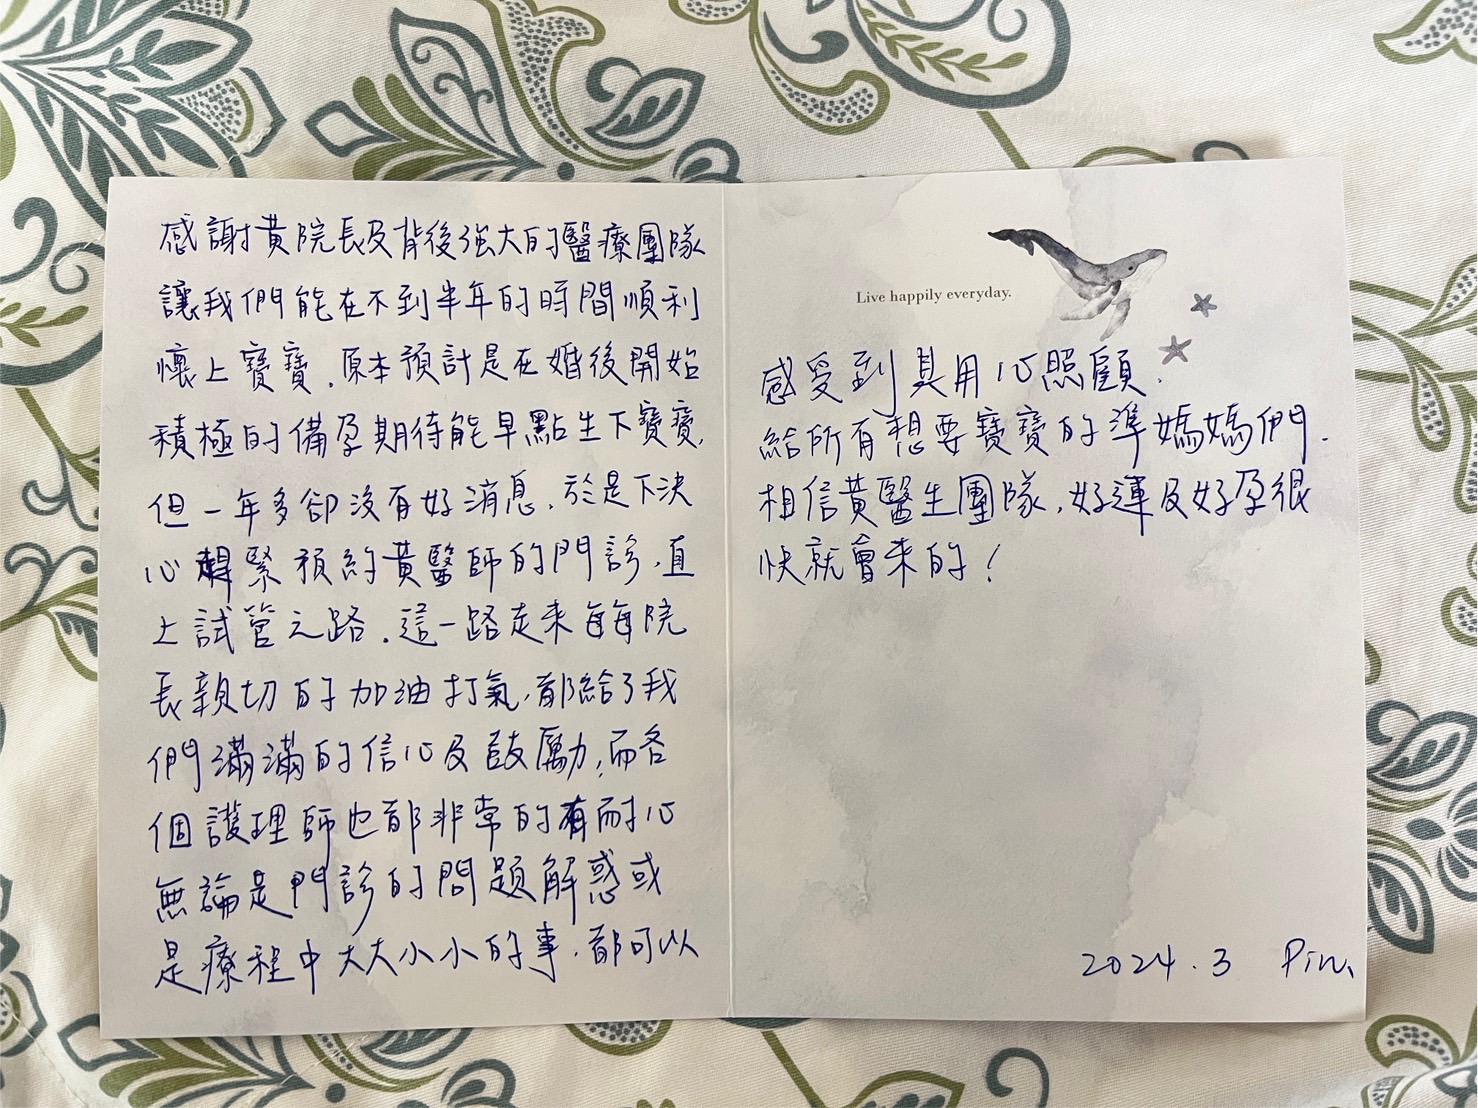 感謝黃院長及背後強大的醫療團隊
讓我們能在不到半年的時間順利
懷上寶寶.原本預計是在婚後開始
積極的備孕期待能早點生下寶寶,
但一年多卻沒有好消息.於是下決
心趕緊預約黃醫師的門診.直
上試管之路.這一路走來每每院
長親切的加油打氣,都給了我
們滿滿的信心及鼓勵,而各
個護理師也都非常的有耐心
無論是門診的問題解惑或
是療程中大大小小的事.都可以
Live happily everyday.
感受到其用心照顧.
給所有想要寶寶的準媽媽們.
相信黃醫生團隊,好運及好孕很
快就會來的!
2024.3 Pin.